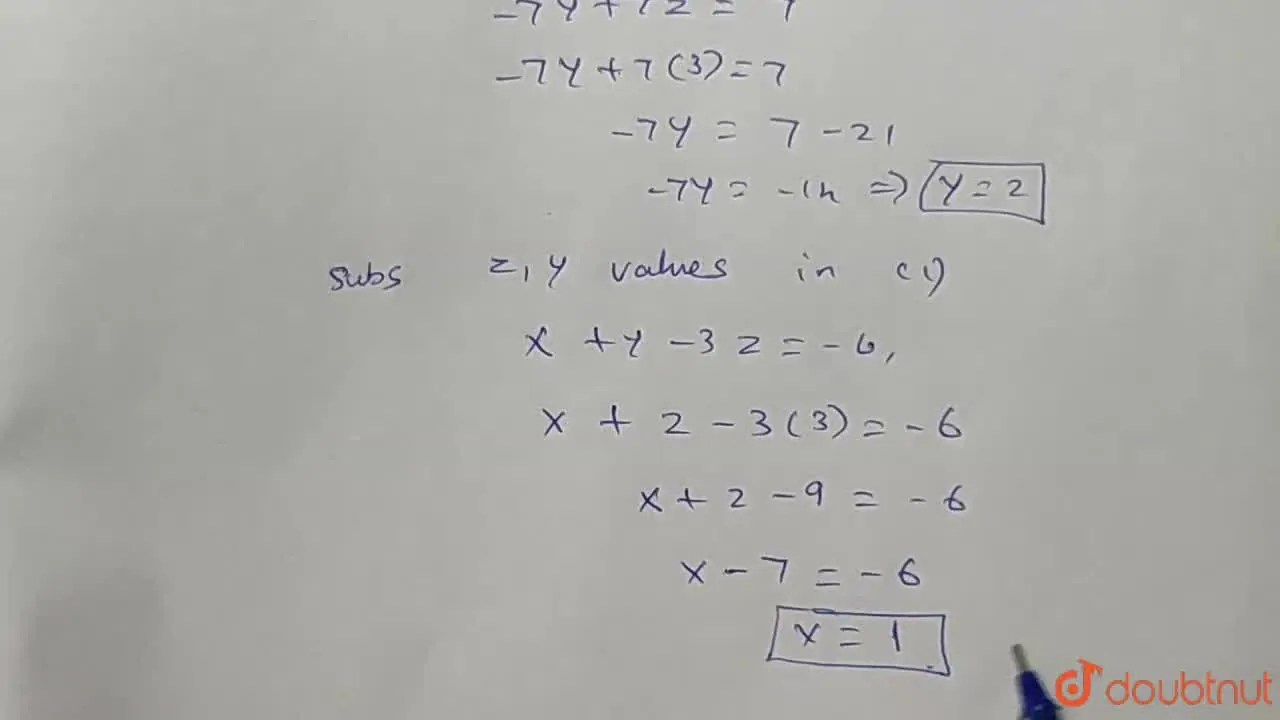 -7y+7z = 7
-7y+7(3)=7
-7y = 7-21
-7y = -14 => y = 2
subs z, y values in (1)
x + y - 3z = -6,
x + 2 - 3(3) = -6
x + 2 - 9 = -6
x - 7 = -6
x = 1
doubtnut